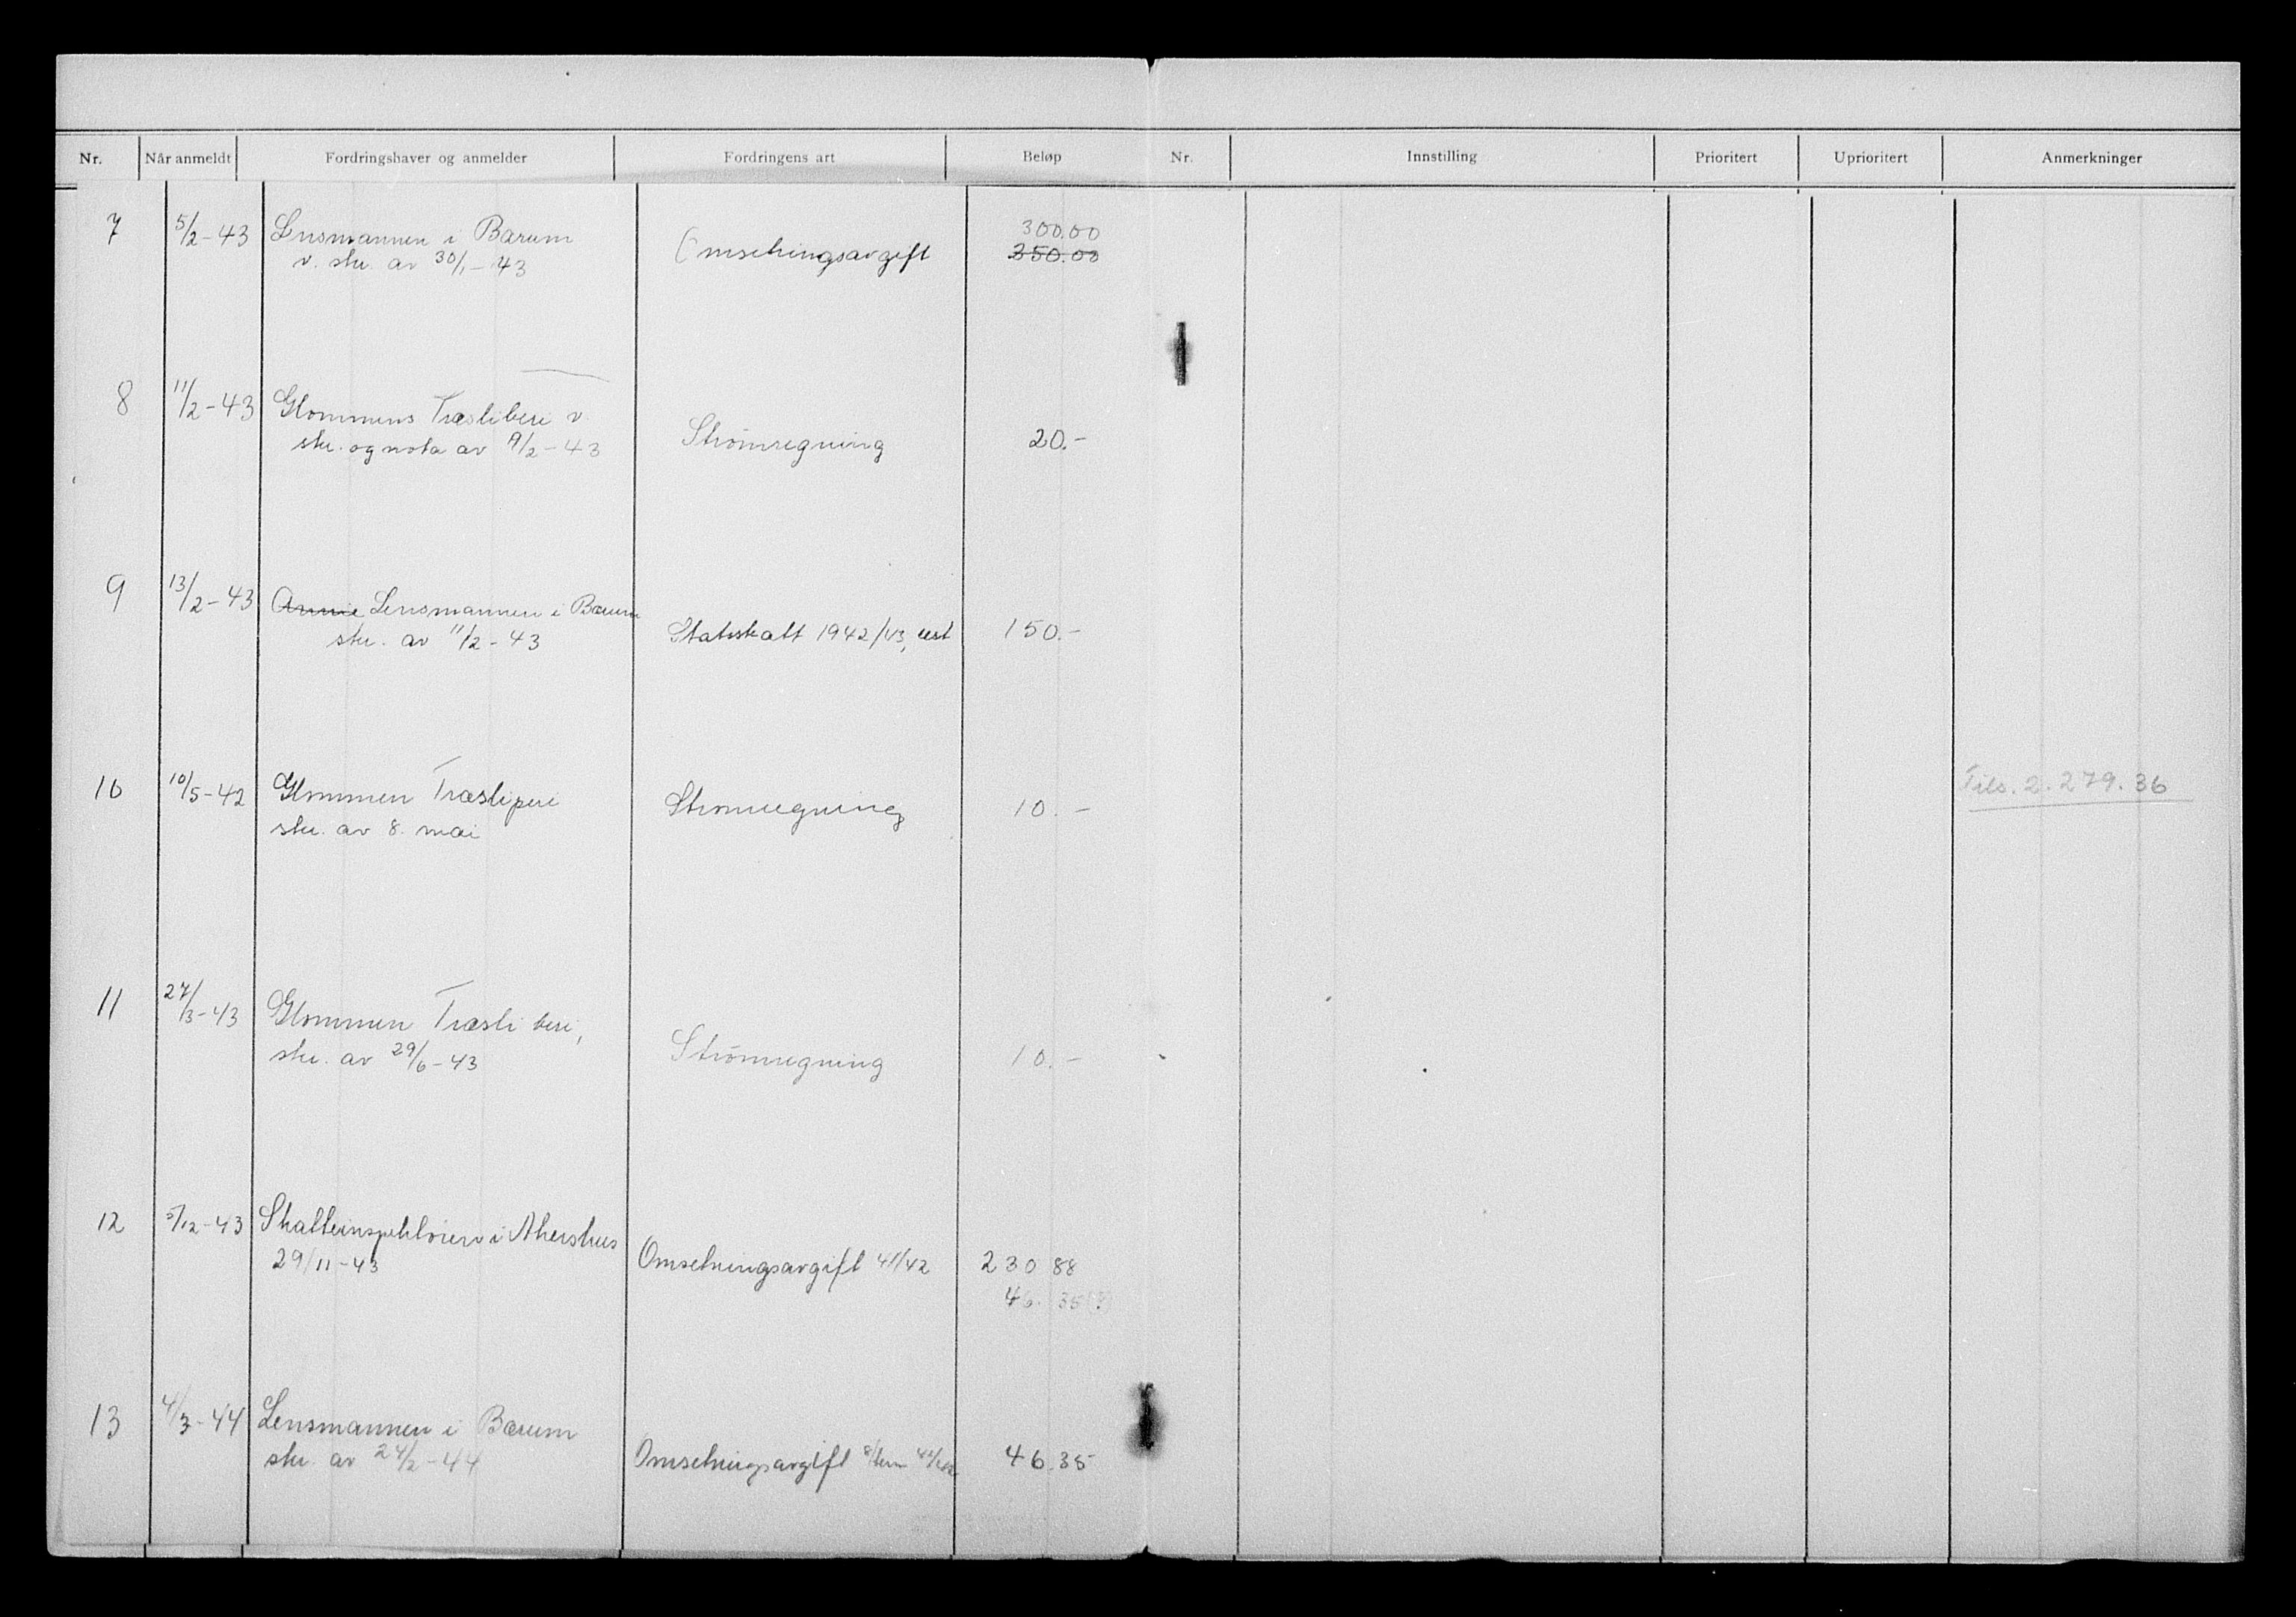 Nr. Når anmeldt Fordringshaver og anmelder Fordringens art Beløp Nr. Innstilling Prioritert Uprioritert Anmerkninger
7 5/2-43 Lensmannen i Bærum 300.00
v. skr. av 30/1-43 Omsetningsavgift 350.00
8 11/2-43 Glommens Træsliberi v.
skr. og nota av 9/2-43 Strømregning 20.-
9 13/2-43 Annie Lensmannen i Bærum
skr. av 11/2-43 Statsskatt 1942/43, rest 150.-
10 10/5-42 Glommen Træsliperi Strømregning 10.- Tils. 2.279.36
skr. av 8. mai
11 27/3-43 Glommen Træsliberi,
skr. av 29/6-43 Strømregning 10.-
12 3/12-43 Skatteinspektøren i Akershus
29/11-43 Omsetningsavgift 41/42 230 88
46. 35 (?)
13 4/3-44 Lensmannen i Bærum
skr. av 24/2-44 Omsetningsavgift 46.35